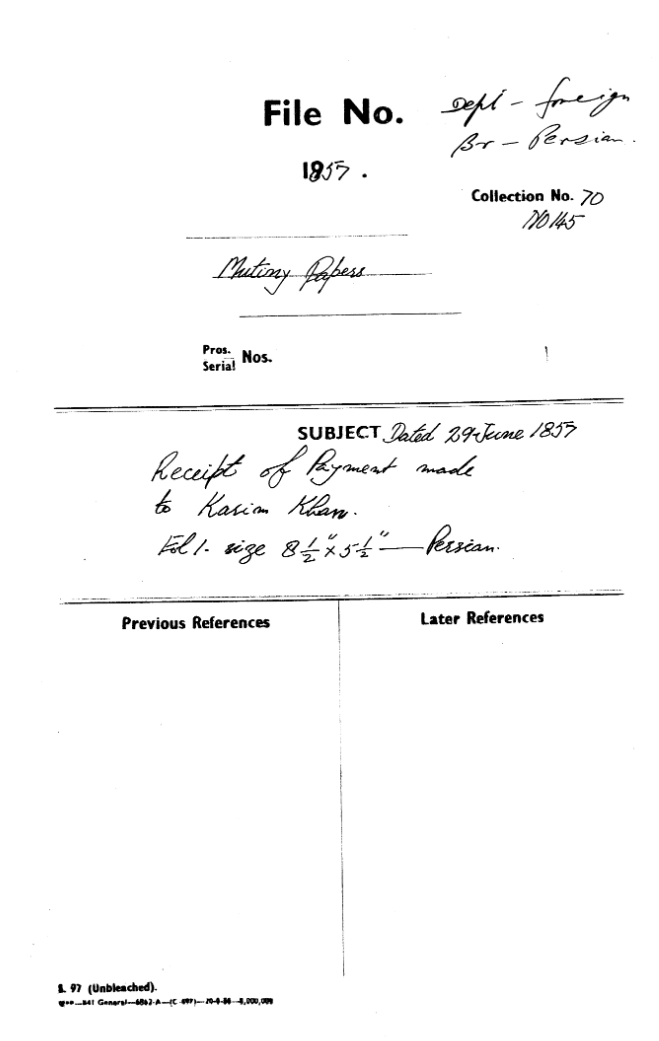 File No.
Dept - foreign
Br - Persian.
1857.
Collection No. 70
NO 145
Mutiny Papers
Pros.
Serial Nos.
1
SUBJECT Dated 29-June 1857
Receipt of Payment made
to Kasim Khan.
Fol 1. size 8 1/2" x 5 1/2" — Persian.
Previous References
Later References
S. 97 (Unbleached).
General—6862-A—